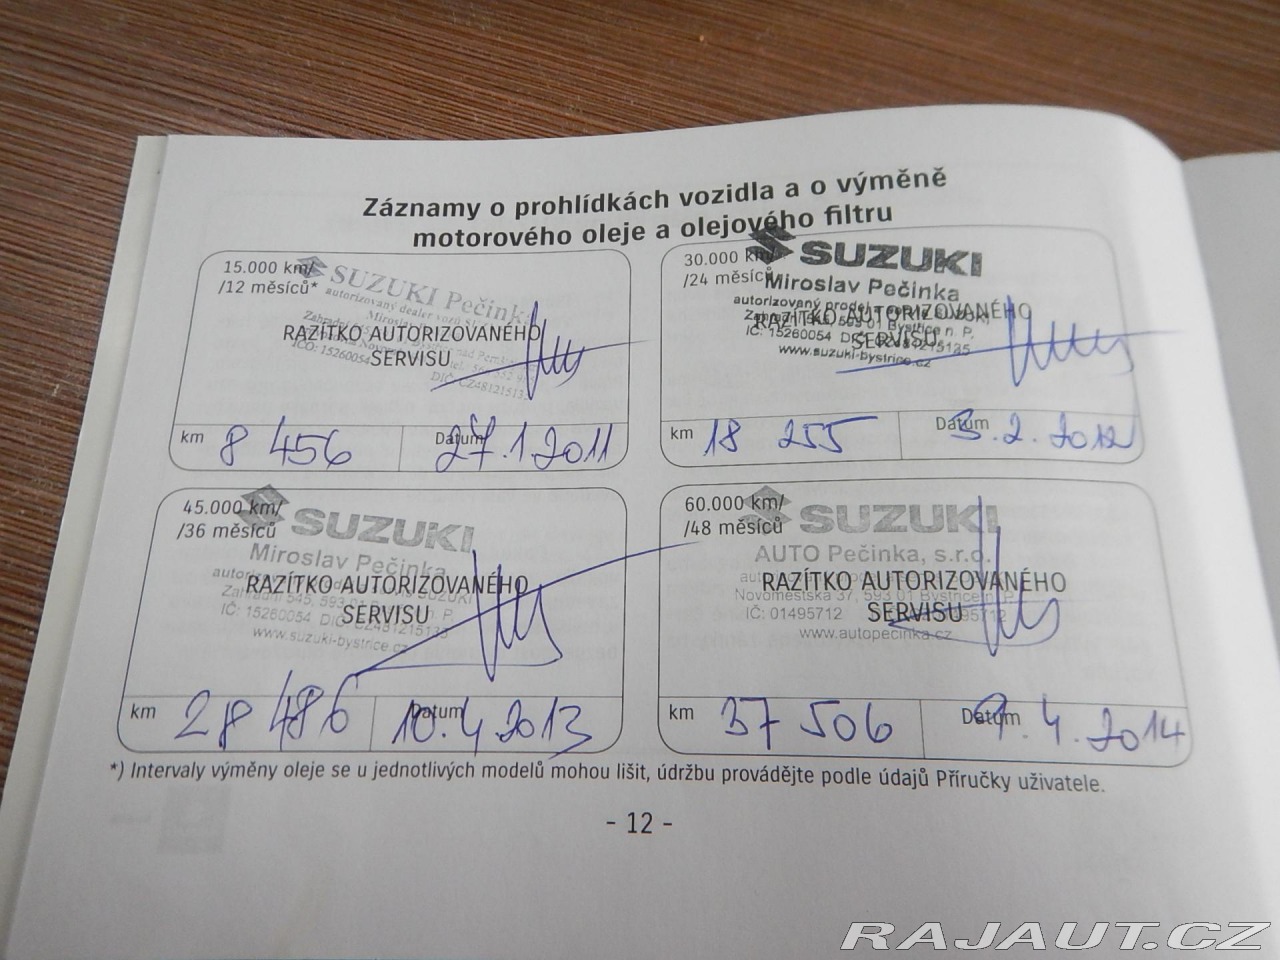 Záznamy o prohlídkách vozidla a o výměně
motorového oleje a olejového filtru
15.000 km/
/12 měsíců*
SUZUKI Pečinka
autorizovaný dealer vozů
RAZÍTKO AUTORIZOVANÉHO
SERVISU
IČO: 15260054
DIČ: CZ48121513
km 8 456 Datum 27.1.2011
30.000 km/
/24 měsíců
SUZUKI
Miroslav Pečinka
autorizovaný prodej
RAZÍTKO AUTORIZOVANÉHO
593 01 Bystřice n. P.
SERVISU
IČ: 15260054
www.suzuki-bystrice.cz
km 18 255 Datum 3.2.2012
45.000 km/
/36 měsíců
SUZUKI
Miroslav Pečinka
RAZÍTKO AUTORIZOVANÉHO
Zahradní 545, 593 01
SERVISU
IČ: 15260054 DIČ
www.suzuki-bystrice.cz
km 28 486 Datum 10.4.2013
60.000 km/
/48 měsíců
SUZUKI
AUTO Pečinka, s.r.o.
RAZÍTKO AUTORIZOVANÉHO
Novoměstská 37, 593 01 Bystřice n. P.
SERVISU
IČ: 01495712
www.autopecinka.cz
km 37 506 Datum 9.4.2014
*) Intervaly výměny oleje se u jednotlivých modelů mohou lišit, údržbu provádějte podle údajů Příručky uživatele.
- 12 -
RAJAUT.CZ